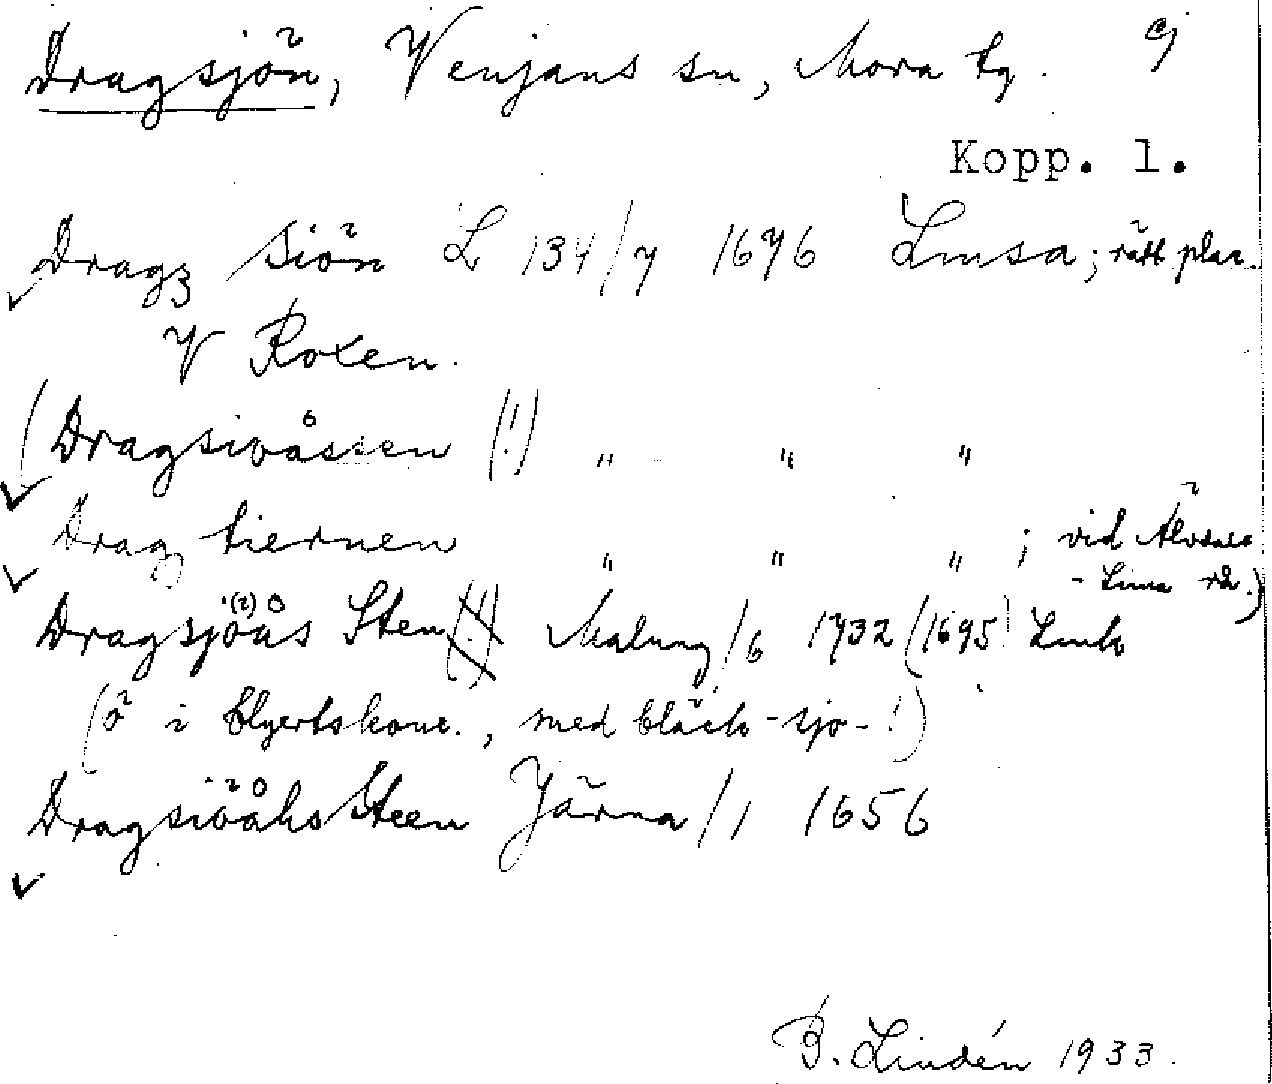 Dragsjön, Venjans sn, Mora tg. ej
Kopp. l.
Dragz siön L 134/7 1676 Lmsa; rätt plac.
V Roxen.
(Dragsiöåssen (!) " " "
Dragz tiernen " " " ; vid Älvdals
- Lima rå.)
Dragsjöås Sten Malung/6 1732 (1695) Lmk
(ö i Elgertskonc., med bläck -sjo-!)
DragsiöåhsSteen Järna/1 1656
B. Lindén 1933.